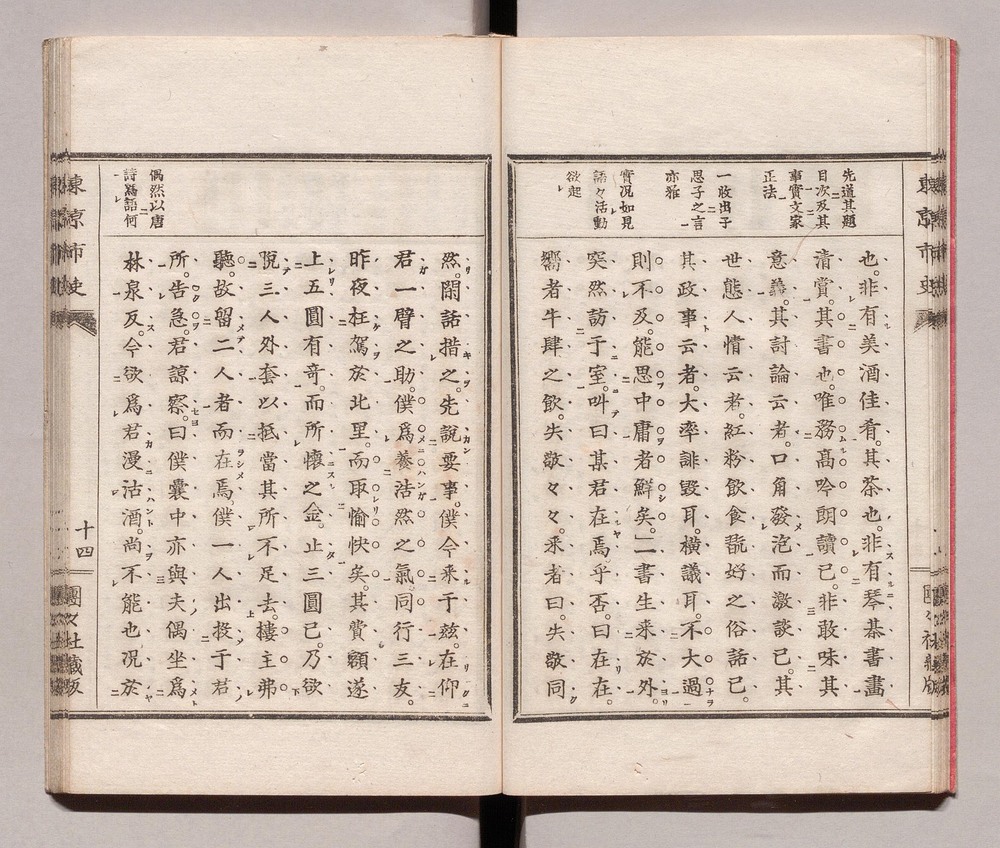 東京市史
先道其題
目次及其
事實文家
正法
一收出子
思子之言
亦雅
實況如見
語々活動
欲起
也。非有美酒佳肴。其茶也。非有琴棊書畫
清賞。其書也。唯務高吟朗讀已。非敢味其
意義。其討論云者。口角發泡而激談已。其
世態人情云者。紅粉飲食翫好之俗話已。
其政事云者。大率誹毀耳。橫議耳。不大過
則不及。能思中庸者鮮矣。一書生来於外。
突然訪于室。叫曰某君在焉乎否。曰在在。
嚮者牛肆之飲。失敬々々。来者曰。失敬同
偶然以唐
詩爲語何
然。閑話措之。先說要事。僕今来于茲。在仰
君一臂之助。僕爲養浩然之氣。同行三友。
昨夜枉駕於北里。而取愉快矣。其費額遂
上五圓有奇。而所懷之金。止三圓已。乃欲
脫三人外套以抵當其所不足去。樓主弗
聽。故留二人者而在焉。僕一人出投于君
所。告急。君諒察。曰僕囊中亦與夫偶坐爲
林泉反。今欲爲君漫沽酒。尚不能也況於
東京市史
十四
團々社藏版